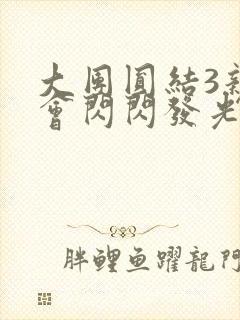 大團圓結3
會閃閃發光
胖鯉鱼躍龍門